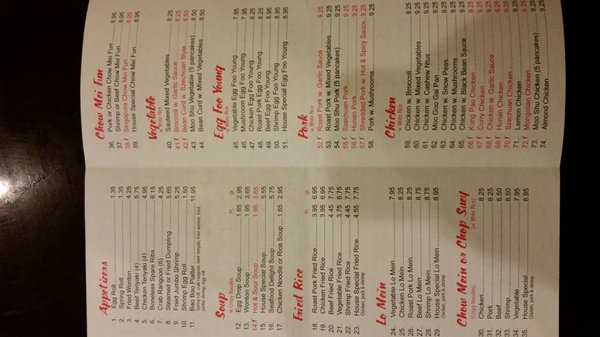 Appetizers
1. Egg Roll 1.35
2. Spring Roll 1.35
3. Fried Wonton 4.25
4. Beef Teriyaki (4) 5.75
5. Chicken Teriyaki (4) 4.95
6. Boneless Spare Ribs 6.15
7. Crab Rangoon (6) 4.25
8. Steamed or Fried Dumpling 5.25
9. Fried Jumbo Shrimp 5.25
10. Shrimp Egg Roll 1.50
11. Bao Bao Platter 11.95
Soup
(w. Crispy Noodles)
Pt. Qt.
12. Egg Drop Soup 1.65 2.95
13. Wonton Soup 1.95 3.65
14. Hot & Sour Soup 1.95 3.65
15. House Special Soup 5.55
16. Seafood Delight Soup 5.75
17. Chicken Noodle or Rice Soup 1.65 2.95
Fried Rice
Pt. Qt.
18. Roast Pork Fried Rice 3.95 6.95
19. Chicken Fried Rice 3.95 6.95
20. Beef Fried Rice 4.45 7.75
21. Vegetable Fried Rice 3.75 6.75
22. Shrimp Fried Rice 4.45 7.75
23. House Special Fried Rice 4.55 7.75
Chicken, pork & shrimp
Lo Mein
24. Vegetable Lo Mein 7.95
25. Chicken Lo Mein 8.25
26. Roast Pork Lo Mein 8.25
27. Beef Lo Mein 8.75
28. Shrimp Lo Mein 8.75
29. House Special Lo Mein 8.95
Chicken, pork & shrimp
Chow Mein or Chop Suey
(Crispy Noodle) (w. White Rice)
30. Chicken 8.25
31. Pork 8.25
32. Beef 8.50
33. Shrimp 8.50
34. Vegetable 7.95
35. House Special 8.75
Chicken, pork & shrimp
Chow Mei Fun
36. Pork or Chicken Chow Mei Fun 8.95
37. Shrimp or Beef Chow Mei Fun 8.95
38. Singapore Chow Mei Fun 8.95
39. House Special Chow Mei Fun 8.95
Vegetable
w. White Rice
40. Sauteed Mixed Vegetables 8.25
41. Broccoli w. Garlic Sauce 8.25
42. Bean Curd w. Szechuan Style 8.50
43. Moo Shu Vegetable (5 pancakes) 8.50
44. Bean Curd w. Mixed Vegetables 8.50
Egg Foo Young
45. Vegetable Egg Foo Young 7.95
46. Mushroom Egg Foo Young 7.95
47. Chicken Egg Foo Young 8.25
48. Roast Pork Egg Foo Young 8.25
49. Beef Egg Foo Young 8.50
50. Shrimp Egg Foo Young 8.50
51. House Special Egg Foo Young 8.95
Pork
w. White Rice
52. Roast Pork w. Garlic Sauce 9.25
53. Roast Pork w. Mixed Vegetables 9.25
54. Moo Shu Pork (5 pancakes) 9.25
55. Szechuan Pork 9.25
56. Hunan Pork 9.25
57. Shredded Pork w. Hot & Spicy Sauce 9.25
58. Pork w. Mushrooms 9.25
Chicken
w. White Rice
59. Chicken w. Broccoli 9.25
60. Chicken w. Mixed Vegetables 9.25
61. Chicken w. Cashew Nuts 9.25
62. Moo Goo Gai Pan 9.25
63. Chicken w. Snow Peas 9.25
64. Chicken w. Mushrooms 9.25
65. Chicken w. Black Bean Sauce 9.25
66. Kung Pao Chicken 9.25
67. Curry Chicken 9.25
68. Chicken w. Garlic Sauce 9.25
69. Hunan Chicken 9.25
70. Szechuan Chicken 9.25
71. Lemon Chicken 9.25
72. Mongolian Chicken 9.25
73. Moo Shu Chicken (5 pancakes) 9.25
74. Almond Chicken 9.25